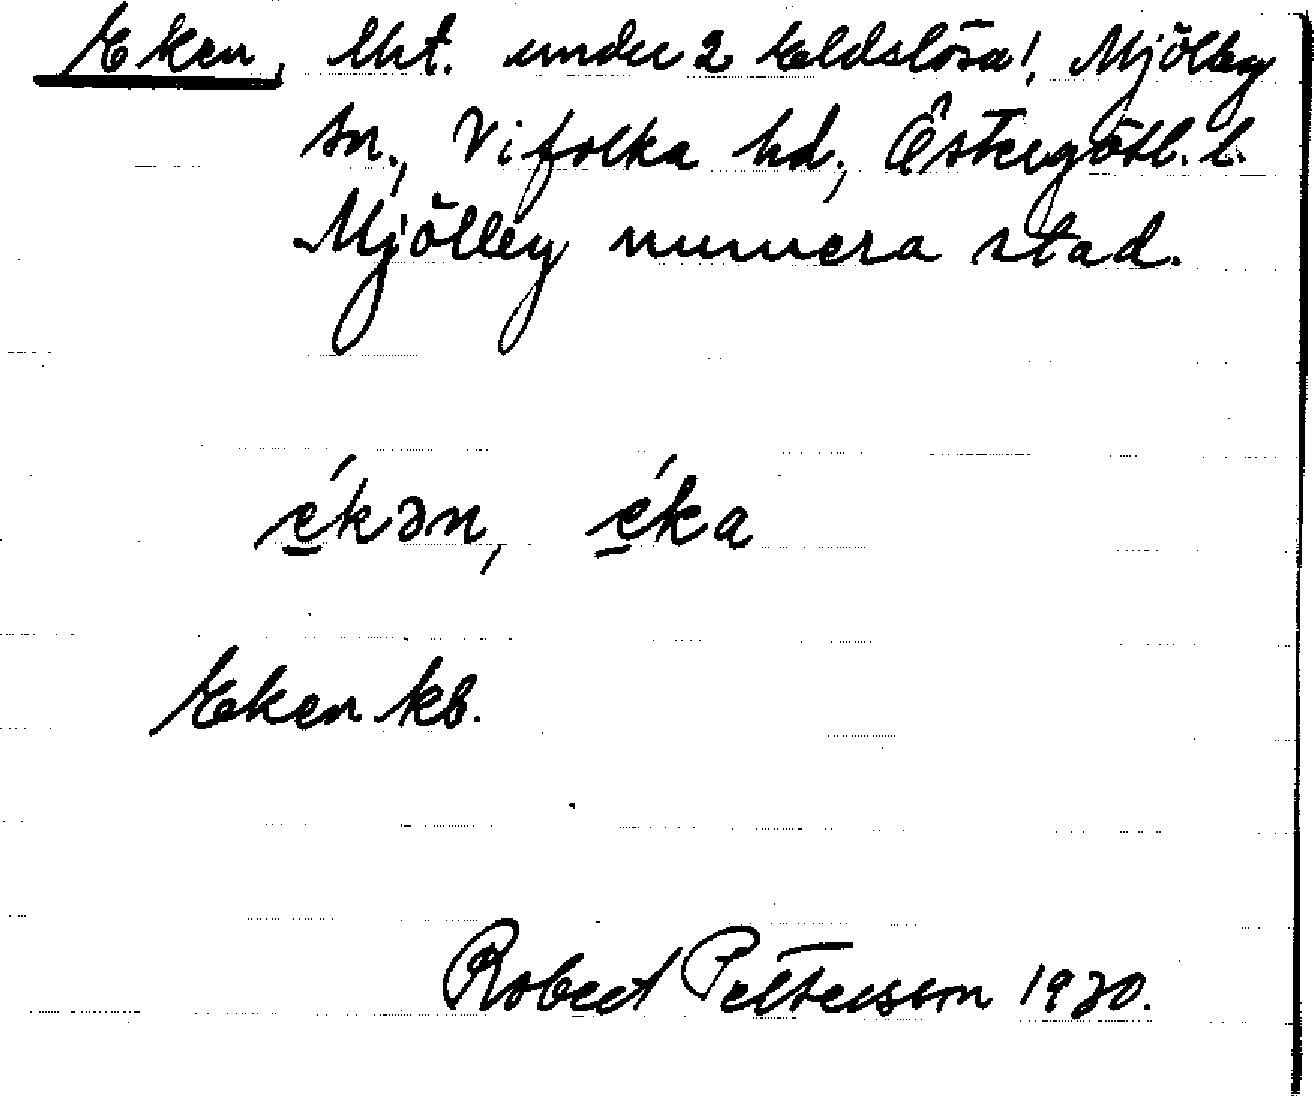 Eken, lht. under 2 Eldslösa!, Mjölby
sn., Vifolka hd., Östergötl. l.
Mjölby numera stad.
ékən, éka
Eken kb.
Robert Pettersson 1930.